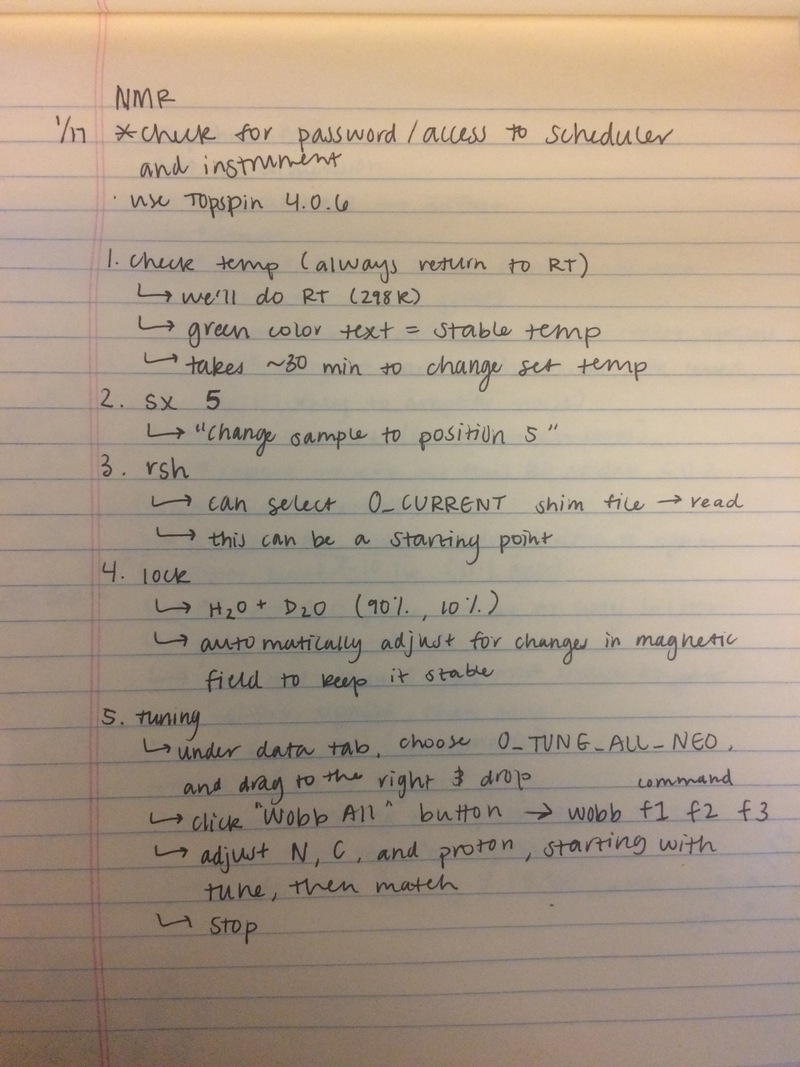 NMR
1/17 *check for password/access to scheduler
and instrument
· use Topspin 4.0.6
1. check temp (always return to RT)
↳ we'll do RT (298K)
↳ green color text = stable temp
↳ takes ~30 min to change set temp
2. sx 5
↳ "change sample to position 5"
3. rsh
↳ can select O_CURRENT shim file → read
↳ this can be a starting point
4. lock
↳ H2O + D2O (90%, 10%)
↳ automatically adjust for changes in magnetic
field to keep it stable
5. tuning
↳ under data tab, choose O_TUNG_ALL_NEO,
and drag to the right & drop
command
↳ click "Wobb All" button → wobb f1 f2 f3
↳ adjust N, C, and proton, starting with
tune, then match
↳ stop